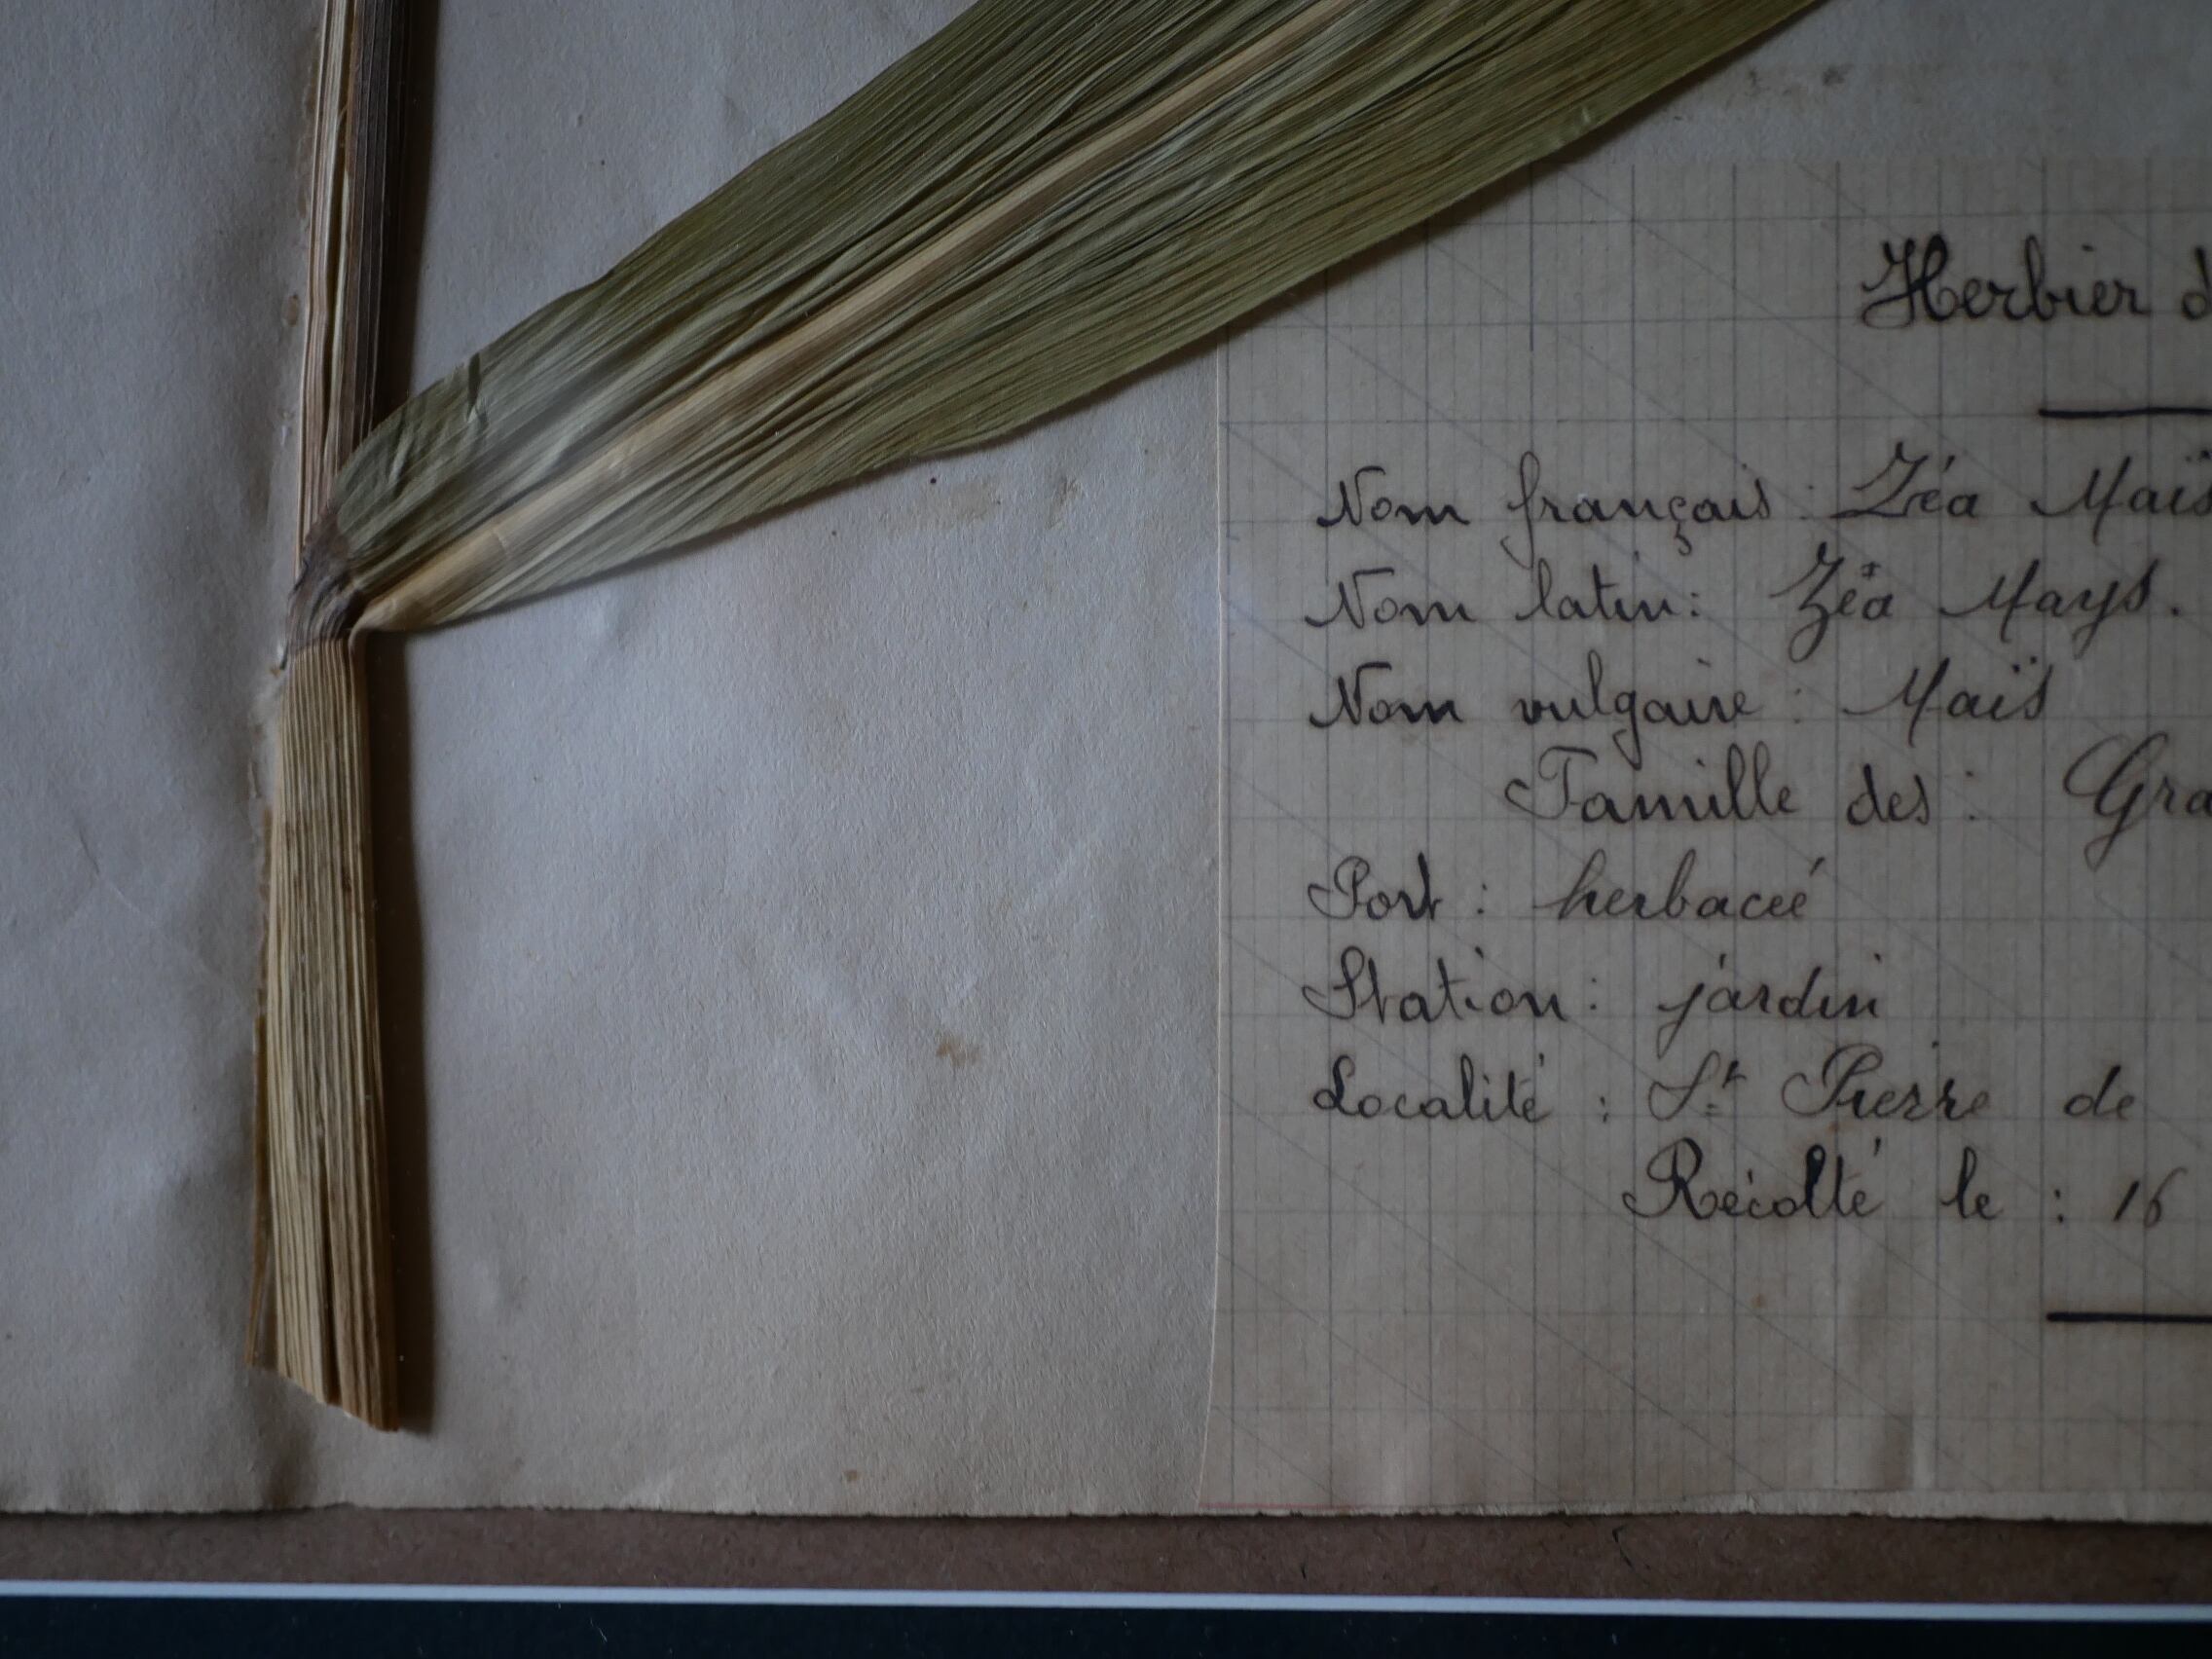 Herbier d
Nom français : Zéa Maïs
Nom latin : Zéa Mays.
Nom vulgaire : Maïs
Famille des : Gra
Port : herbacée
Station : jardin
Localité : St Pierre de
Récolté le : 16